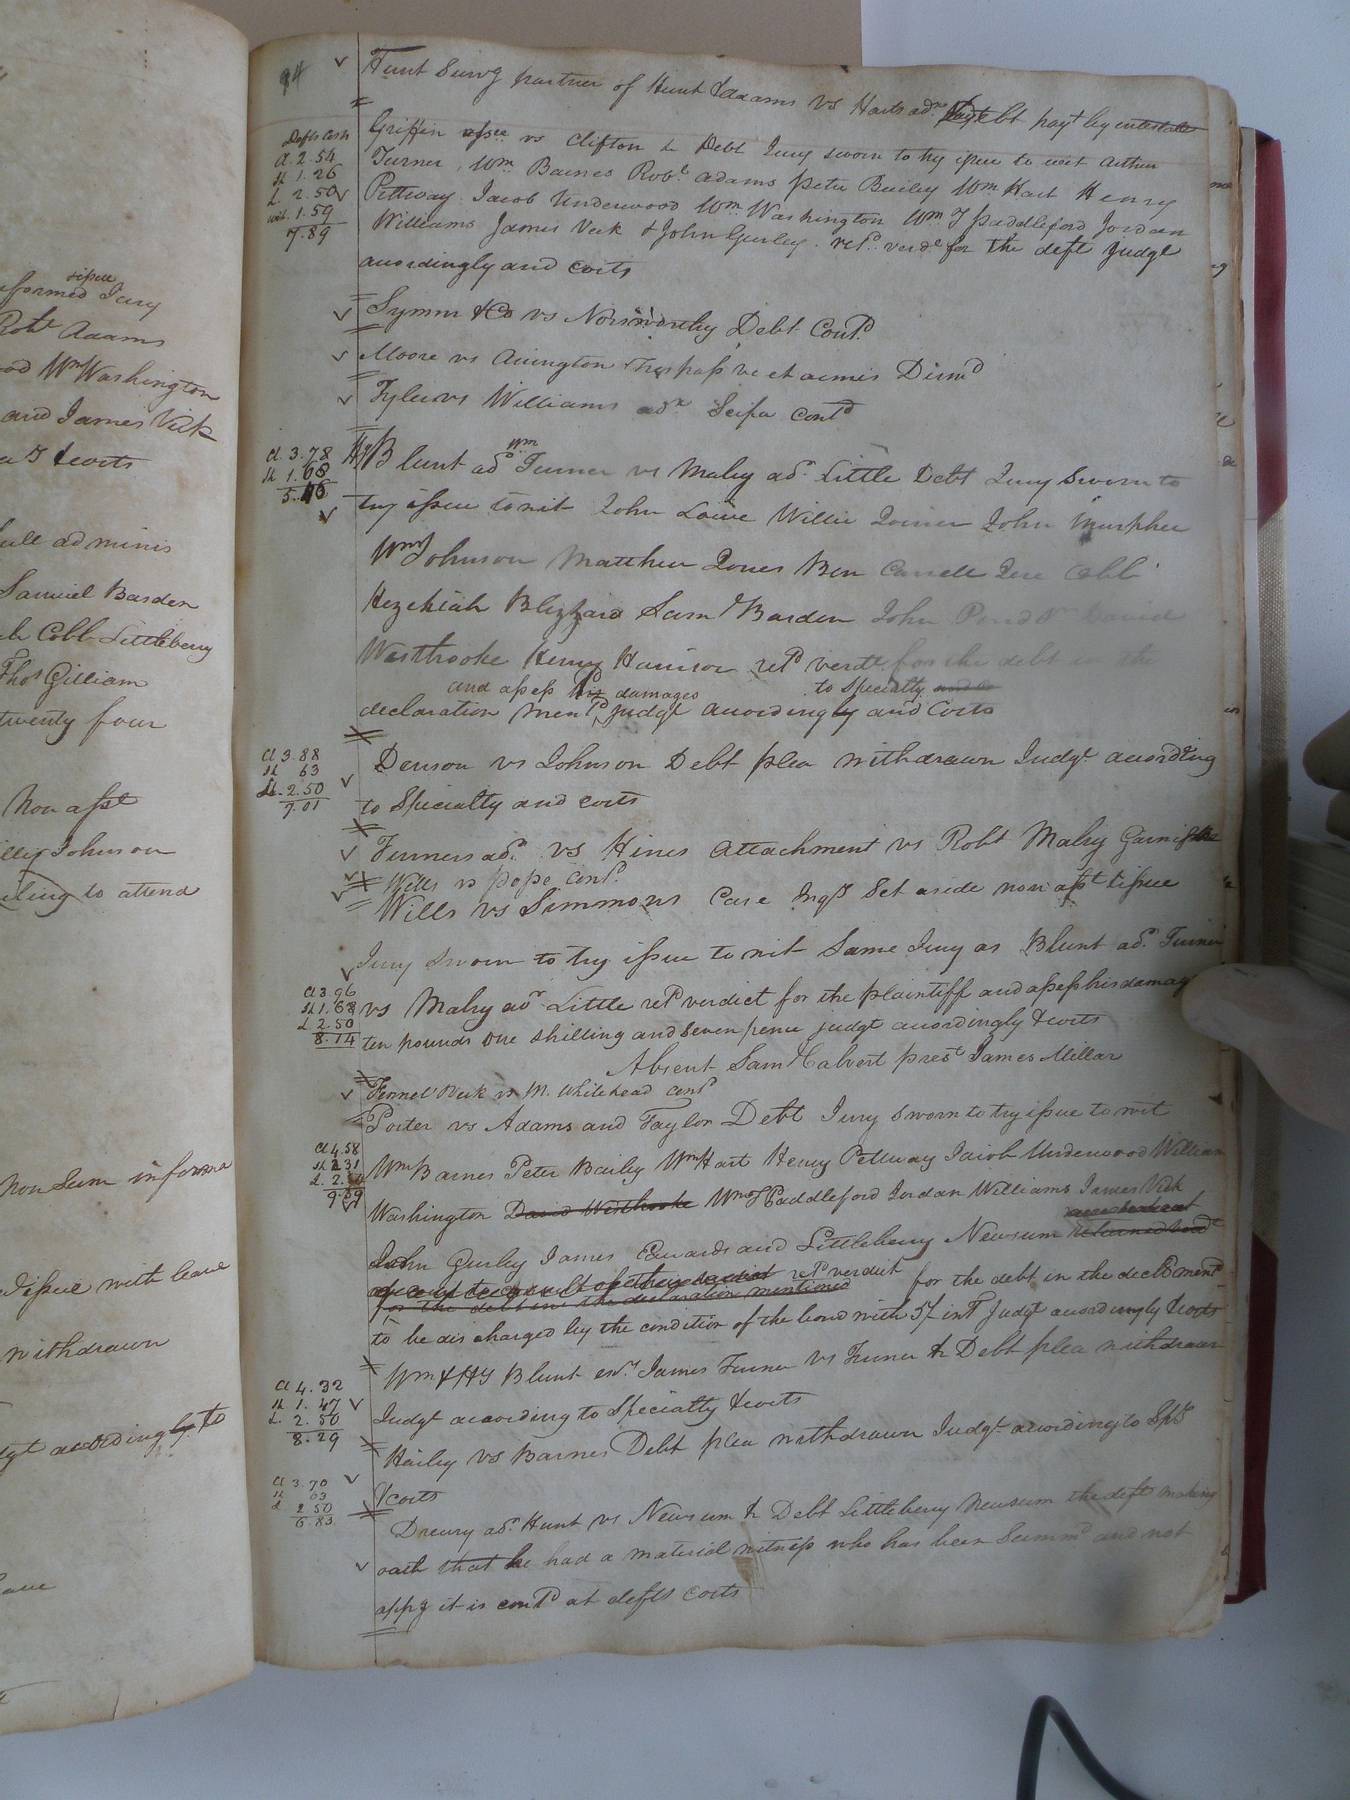 94
Hunt Survg partner of Hunt & Adams vs Harts adr Debt payt by intestate
Defts Costs
Cl 2.54
Sh 1.26
L. 2.50
wit. 1.59
7.89
Griffin assee vs Clifton & Debt Jury sworn to try issue to wit Arthur
Turner, Wm Barnes Robt Adams Peter Bailey Wm Hart Henry
Pettway Jacob Underwood Wm Washington Wm T Paddleford Jordan
Williams James Vick & John Gurley retd verdt for the deft Judgt
accordingly and Costs
Symm & Co vs Norsworthy Debt Contd
Moore vs Arrington Trespass vi et armis Dismd
Tyler vs Williams adr Scifa Contd
Cl 3.78
Sh 1.68
5.46
Hy Blunt adr Wm Turner vs Mabry adr Little Debt Jury sworn to
try issue to wit John Lowe Willie Joiner John Murphee
Wm Johnson Matthew Jones Ben Carrell Jere Cobb
Hezekiah Blizzard Saml Barden John Pond David
Westbrooke Henry Harrison retd verdt for the debt in the
and assess his damages to Specialty
declaration mentd Judgt accordingly and Costs
Cl 3.88
Sh 63
L. 2.50
7.01
Denson vs Johnson Debt plea withdrawn Judgt according
to Specialty and costs
Turners adr vs Hines Attachment vs Robt Mabry Garnishee
Wills vs Pope Contd
Wills vs Simmons Case Inqy Set aside non asst & issue
Jury sworn to try issue to wit Same Jury as Blunt adr Turner
Cl 3.96
Sh 1.68
L 2.50
8.14
vs Mabry adr Little retd verdict for the plaintiff and assess his damag
ten pounds one shilling and seven pence Judgt accordingly & costs
Absent Saml Calvert prest James Millar
Fennel Vick vs M. Whitehead Contd
Porter vs Adams and Taylor Debt Jury sworn to try issue to wit
Cl 4.58
Sh 2.31
L. 2.50
9.39
Wm Barnes Peter Bailey Wm Hart Henry Pettway Jacob Underwood William
Washington David Westbrooke Wm T Paddleford Jordan Williams James Vick
John Gurley James Edwards and Littleberry Newsum returned verdt
retd verdict for the debt in the decl mentd
for the debt in the declaration mentioned
to be discharged by the condition of the bond with 5 f intt Judgt accordingly & costs
Cl 4.32
Sh 1.47
L 2.50
8.29
Wm & Hy Blunt exrs James Turner vs Turner & Debt plea withdrawn
Judgt according to Specialty & costs
Hailey vs Barnes Debt plea withdrawn Judgt according to Splty
Cl 3.70
Sh 63
L 2.50
6.83
& costs
Dreury adr Hunt vs Newsum & Debt Littleberry Newsum the deft making
oath that he had a material witness who has been Summd and not
appg it is contd at defts Costs
Robt Adams
Wm Washington
and James Vick
& costs
Samuel Barden
Cobb Littleberry
Thos Gilliam
twenty four
Non asst
Johnson
to attend
Non Sum informa
issue with leave
withdrawn
accordingly to